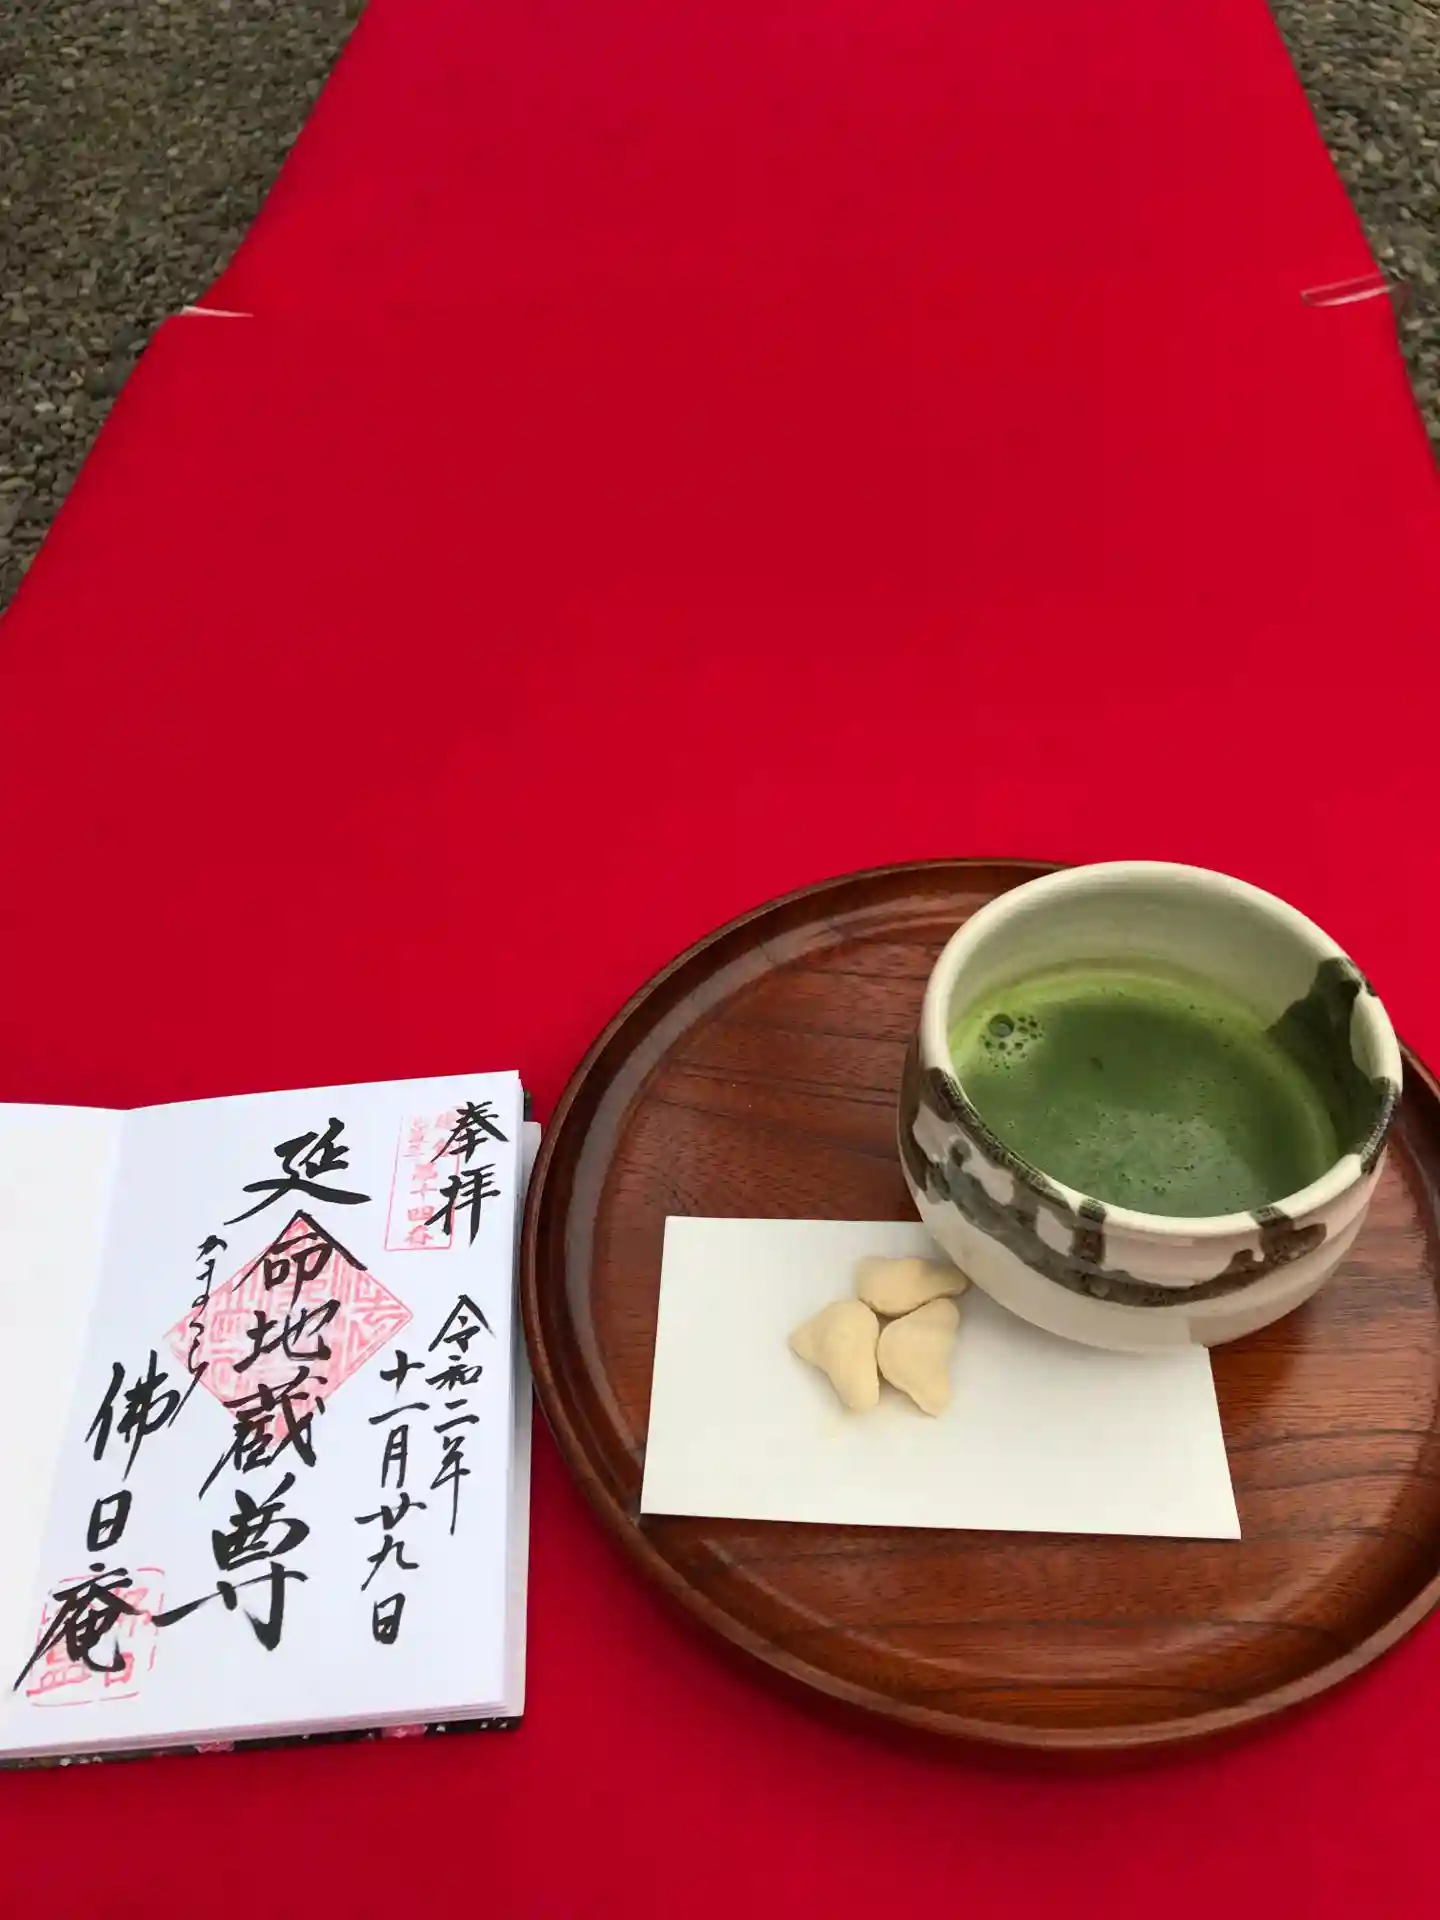 奉拝
令和二年
十一月廿九日
延命地蔵尊
かまくら
佛日庵